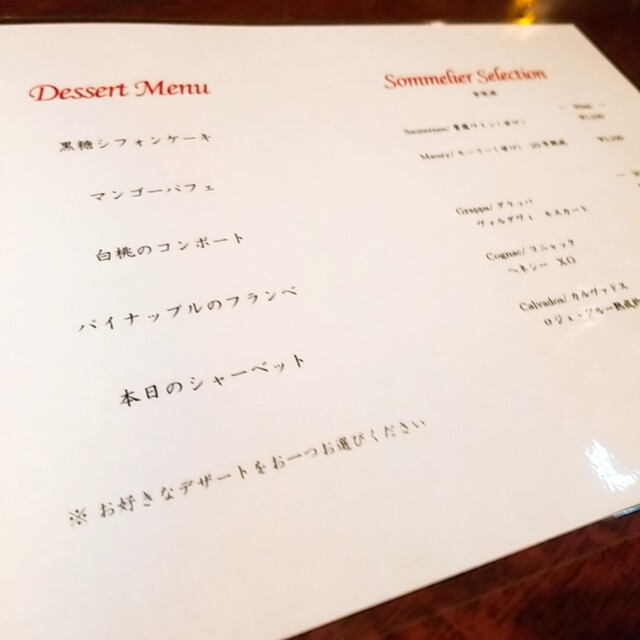 Dessert Menu
黒糖シフォンケーキ
マンゴーパフェ
白桃のコンポート
パイナップルのフランベ
本日のシャーベット
※ お好きなデザートをお一つお選びください
Sommelier Selection
食後酒
Sauternes/ 貴腐ワイン(甘口)
Maury/ モーリー(甘口) 20年熟成
Grappa/ グラッパ
ヴァルダヴィ モスカート
Cognac/ コニャック
ヘネシー XO
Calvados/ カルヴァドス
ロジェ・グルー熟成